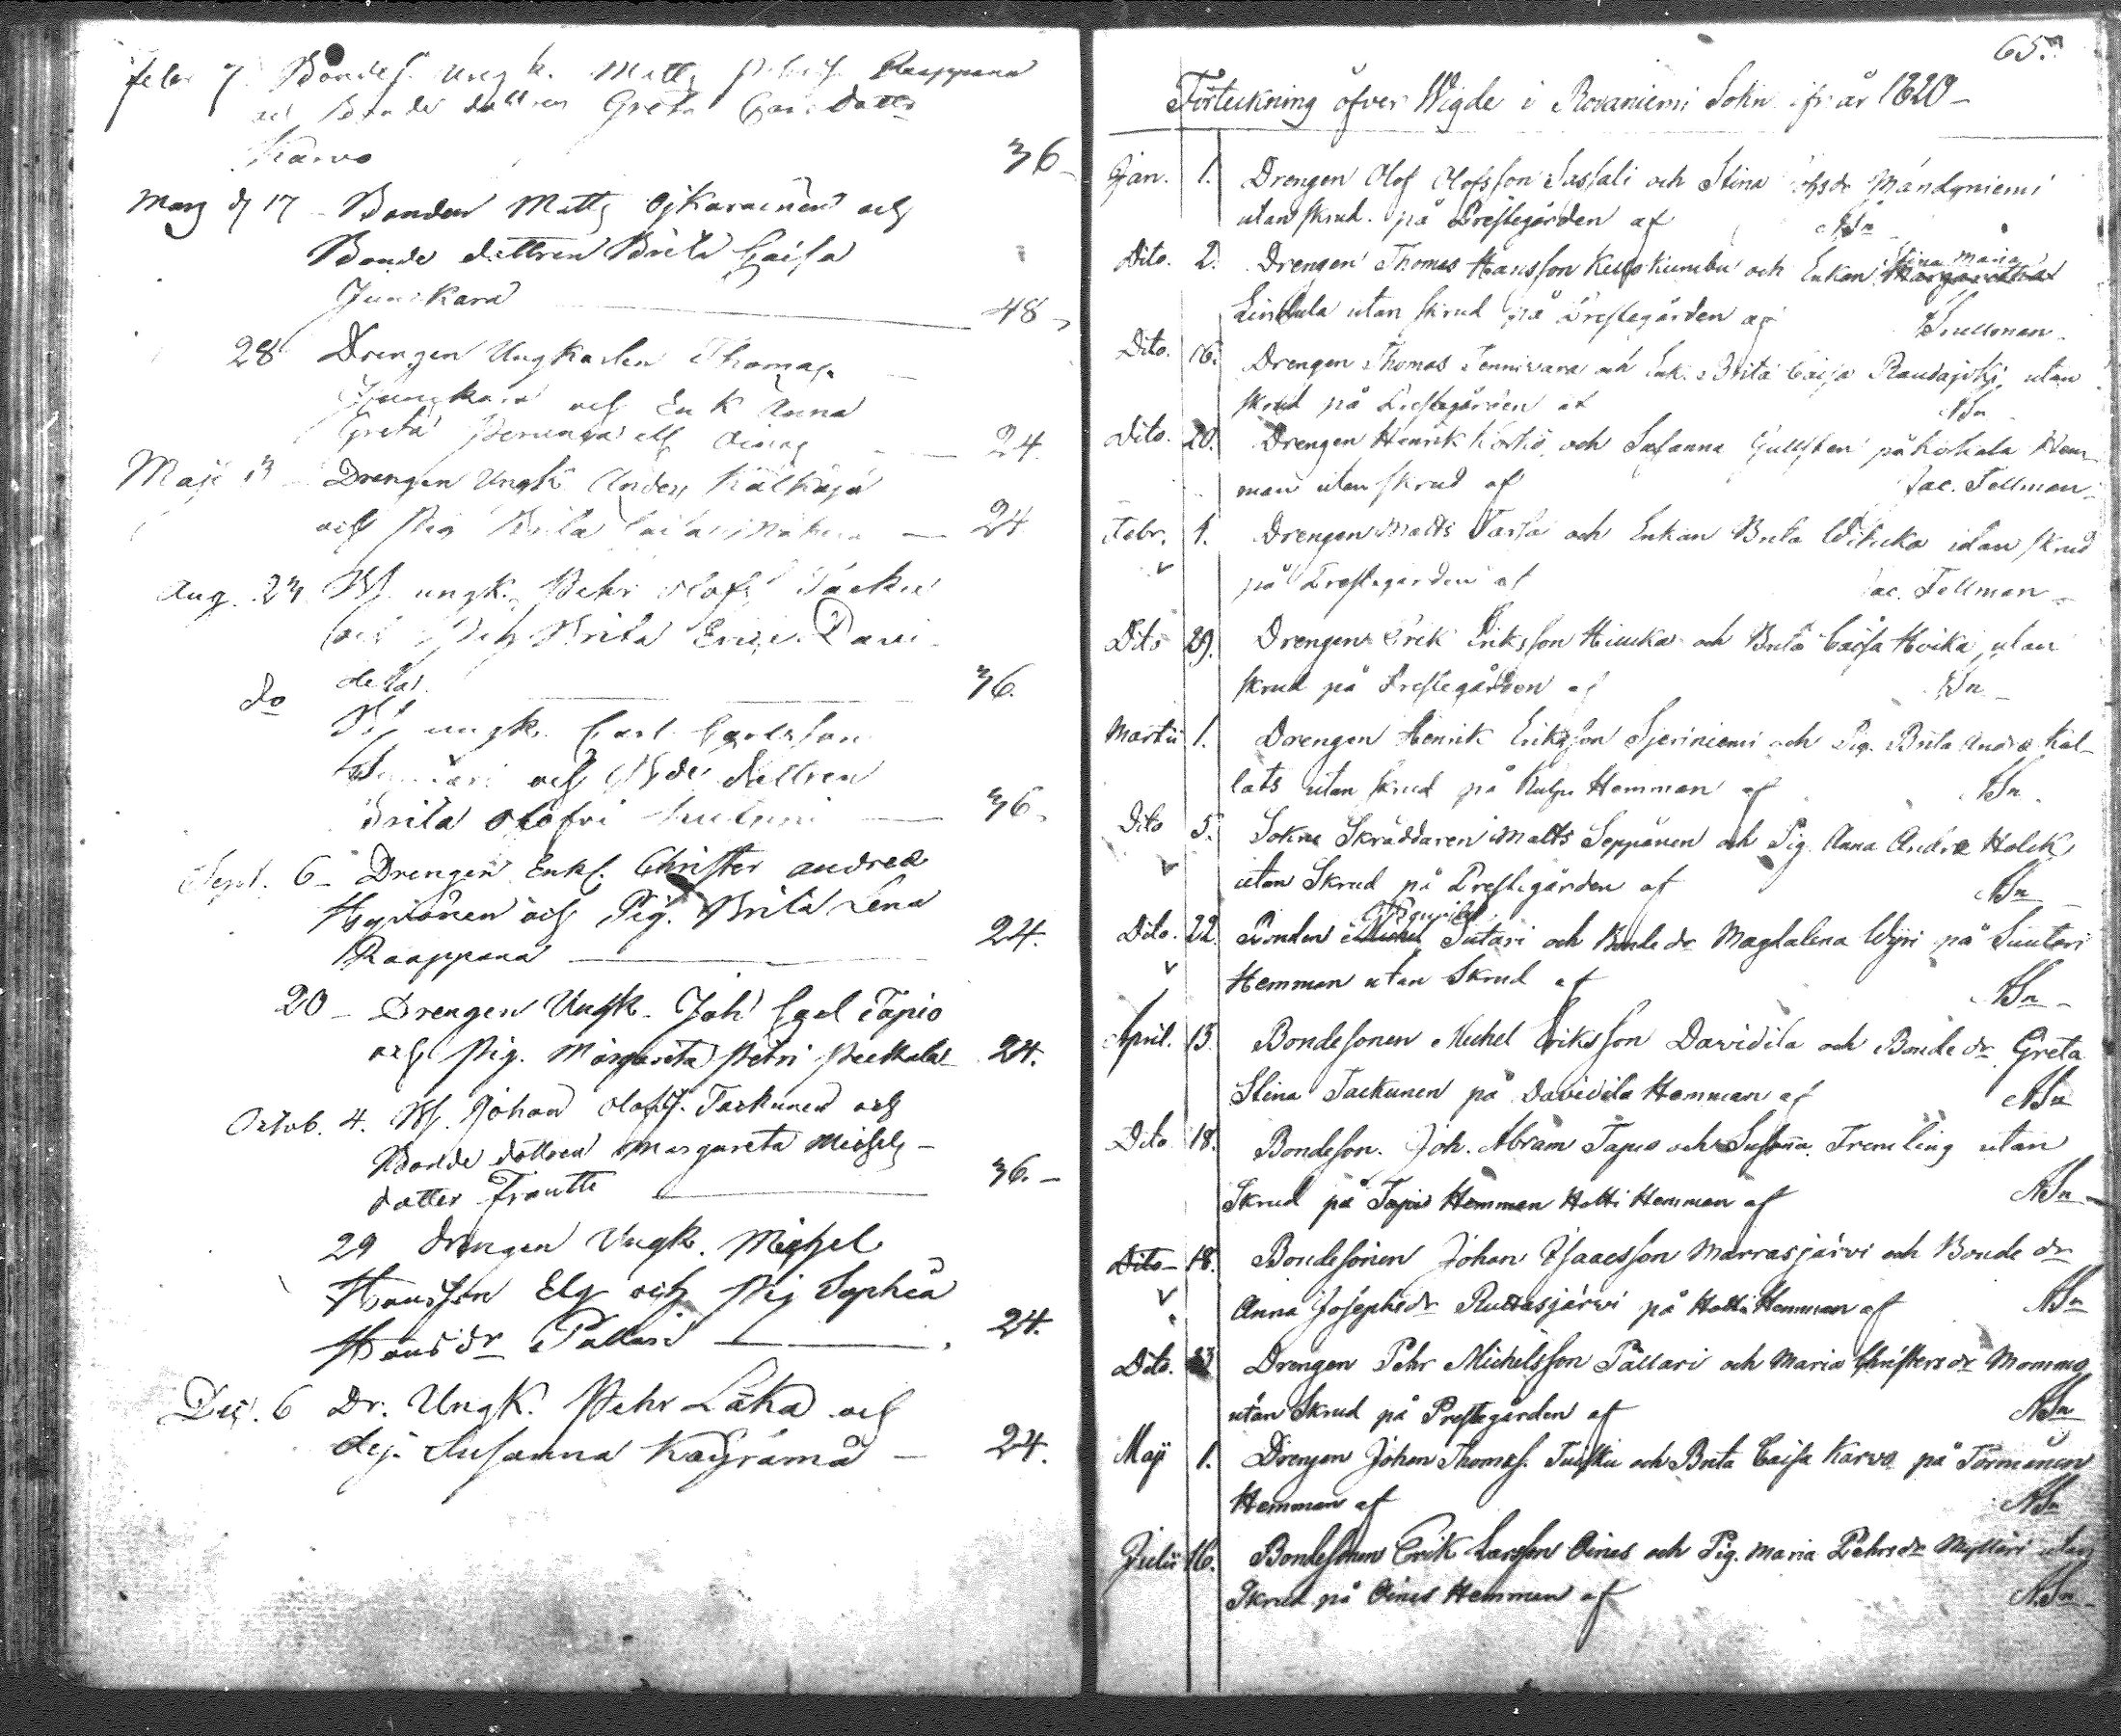 Febr 7. Bondes. Ungk. Matts Raappana
Bonde dottren Greta dotter
Karvo 36
Mars d 17 Bonden Matts Ojkarainen och
Bonde dottren Brita Caisa
Junikara 48
28 Drengen Ungkarlen Thomas
och Enk Anna
Greta 24.
Maji Drengen Ungk Anders Kälkäjä
och Pig Brita Caisa 24
Aug. 23 Bs. ungk. Pehr Olofs
och Pig Brita Eric. Davi-
dela 36.
do Bs ungk. Carl Carlsson
och Bde dottren
Brita Olofri 36.
Sept. 6 Drengen Enkl. Christer Andreæ
och Pig. Brita Lena
Raappana 24.
20 Drengen Ungk. Joh Carl Tapio
och Pig. Margareta Petri 24.
Octob. 4. Bs. Johan Olofs. Tackunen och
Bonde dottren Margareta Michels-
dotter Frantti 36.
29 drengen Ungk. Michel
Hansson Elg och Pig Sophia
Hansdr Pallari 24.
Dec. 6 Dr. Ungk. Pehr Läkä och
Pig. Susanna Kaihrämä 24.
65.
Förteckning öfver Wigde i Rovaniemi Sokn ifr. år 1820
Jan. 1. Drengen Olof Olofsson Sassali och Stina Mändyniemi
utan skrud på Prestegården af NSn
Dito. 2. Drengen Thomas Hansson och Enkan Stina Maria Margaretha
Lindula utan skrud på Prestegården af Snellman
Dito. 16. Drengen Thomas Tennivara och Enk. Brita Caisa Raudajoki, utan
skrud på Prestegården af NSn
Dito. 20. Drengen Henrik Kortio och Susanna Gullsten på Hem-
man utan skrud af Jac. Fellman
Febr. 1. Drengen Matts och Enkan Brita utan skrud
på Prestegården af Jac. Fellman
Dito 29. Drengen Erik Eriksson och Brita Caisa utan
skrud på Prestegården af NSn
Martii 1. Drengen Henrik Eriksson Sjeriniemi och Pig. Brita Andræ Kal-
lats utan skrud på Hemman af NSn
Dito 5. Sokne Skräddaren Matts Seppänen och Pig. Anna Andræ Holck
utan Skrud på Prestegården af NSn
Dito. 22. Bonden Michel Sutari och Bonde dr Magdalena på Suutari
Hemman utan Skrud af NSn
April. 13. Bondesonen Michel Eriksson Davidila och Bonde dr Greta
Stina Tackunen på Davidila Hemman af NSn
Dito 18. Bondeson. Joh. Abram Tapio och Susanna Fremling utan
Skrud på Tapio Hemman Hotti Hemman af NSn
Dito 18. Bondesonen Johan Isaacsson Marrasjärvi och Bonde dr
Anna Josephsdr Ruttasjärvi på Hotti Hemman af NSn
Dito. Drengen Pehr Michelsson Pallari och Maria Christersdr Mommo
utan Skrud på Prestegården af NSn
Maji 1. Drengen Johan Thomass. Tuisku och Brita Caisa Karvo på Törmänen
Hemman af NSn
Julii 16. Bondesonen Erik Larsson Oinas och Pig. Maria Pehrsdr Myllari utan
Skrud på Oinas Hemman af NSn